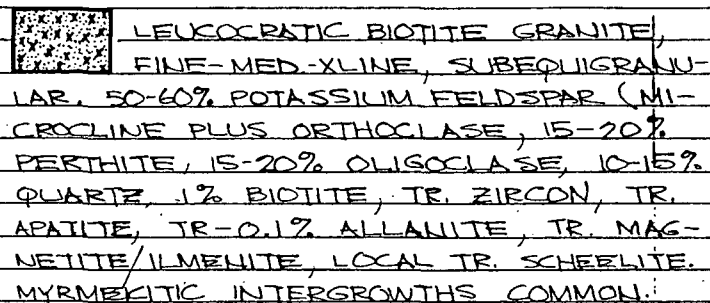 LEUCOCRATIC BIOTITE GRANITE,
FINE-MED.-XLINE, SUBEQUIGRANU-
LAR. 50-60% POTASSIUM FELDSPAR (MI-
CROCLINE PLUS ORTHOCLASE, 15-20%
PERTHITE, 15-20% OLIGOCLASE, 10-15%
QUARTZ, 1% BIOTITE, TR. ZIRCON, TR.
APATITE, TR-0.1% ALLANITE, TR. MAG-
NETITE/ILMENITE, LOCAL TR. SCHEELITE.
MYRMEKITIC INTERGROWTHS COMMON.